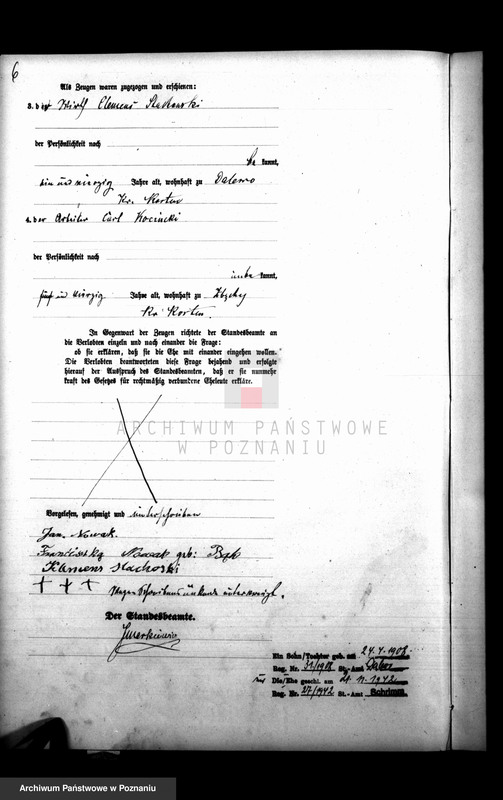 6
Als Zeugen waren zugezogen und erschienen:
3. der Wirth Clemens Stachowski
der Persönlichkeit nach
be kannt,
ein und vierzig Jahre alt, wohnhaft zu Dalewo
Kr. Kosten
4. der Arbeiter Carl Kocinski
der Persönlichkeit nach
unbe kannt,
fünf und vierzig Jahre alt, wohnhaft zu
Kr. Kosten.
In Gegenwart der Zeugen richtete der Standesbeamte an
die Verlobten einzeln und nach einander die Frage:
ob sie erklären, daß sie die Ehe mit einander eingehen wollen.
Die Verlobten beantworteten diese Frage bejahend und erfolgte
hierauf der Ausspruch des Standesbeamten, daß er sie nunmehr
kraft des Gesetzes für rechtmäßig verbundene Eheleute erkläre.
ARCHIWUM PAŃSTWOWE
W POZNANIU
Vorgelesen, genehmigt und unterschrieben
Jan Nowak.
Franciszka Nowak geb: Bąk
Klemens Stachoski
+ + + Wegen Schreibensunkunde unterkreuzt.
Der Standesbeamte.
Ein Sohn/Tochter geb. am 24.4.1908
Reg. Nr. 31/1908 St.-Amt
Die/Ehe geschl. am 21.11.1942
Reg. Nr. 27/1942 St.-Amt Schrimm
Archiwum Państwowe w Poznaniu